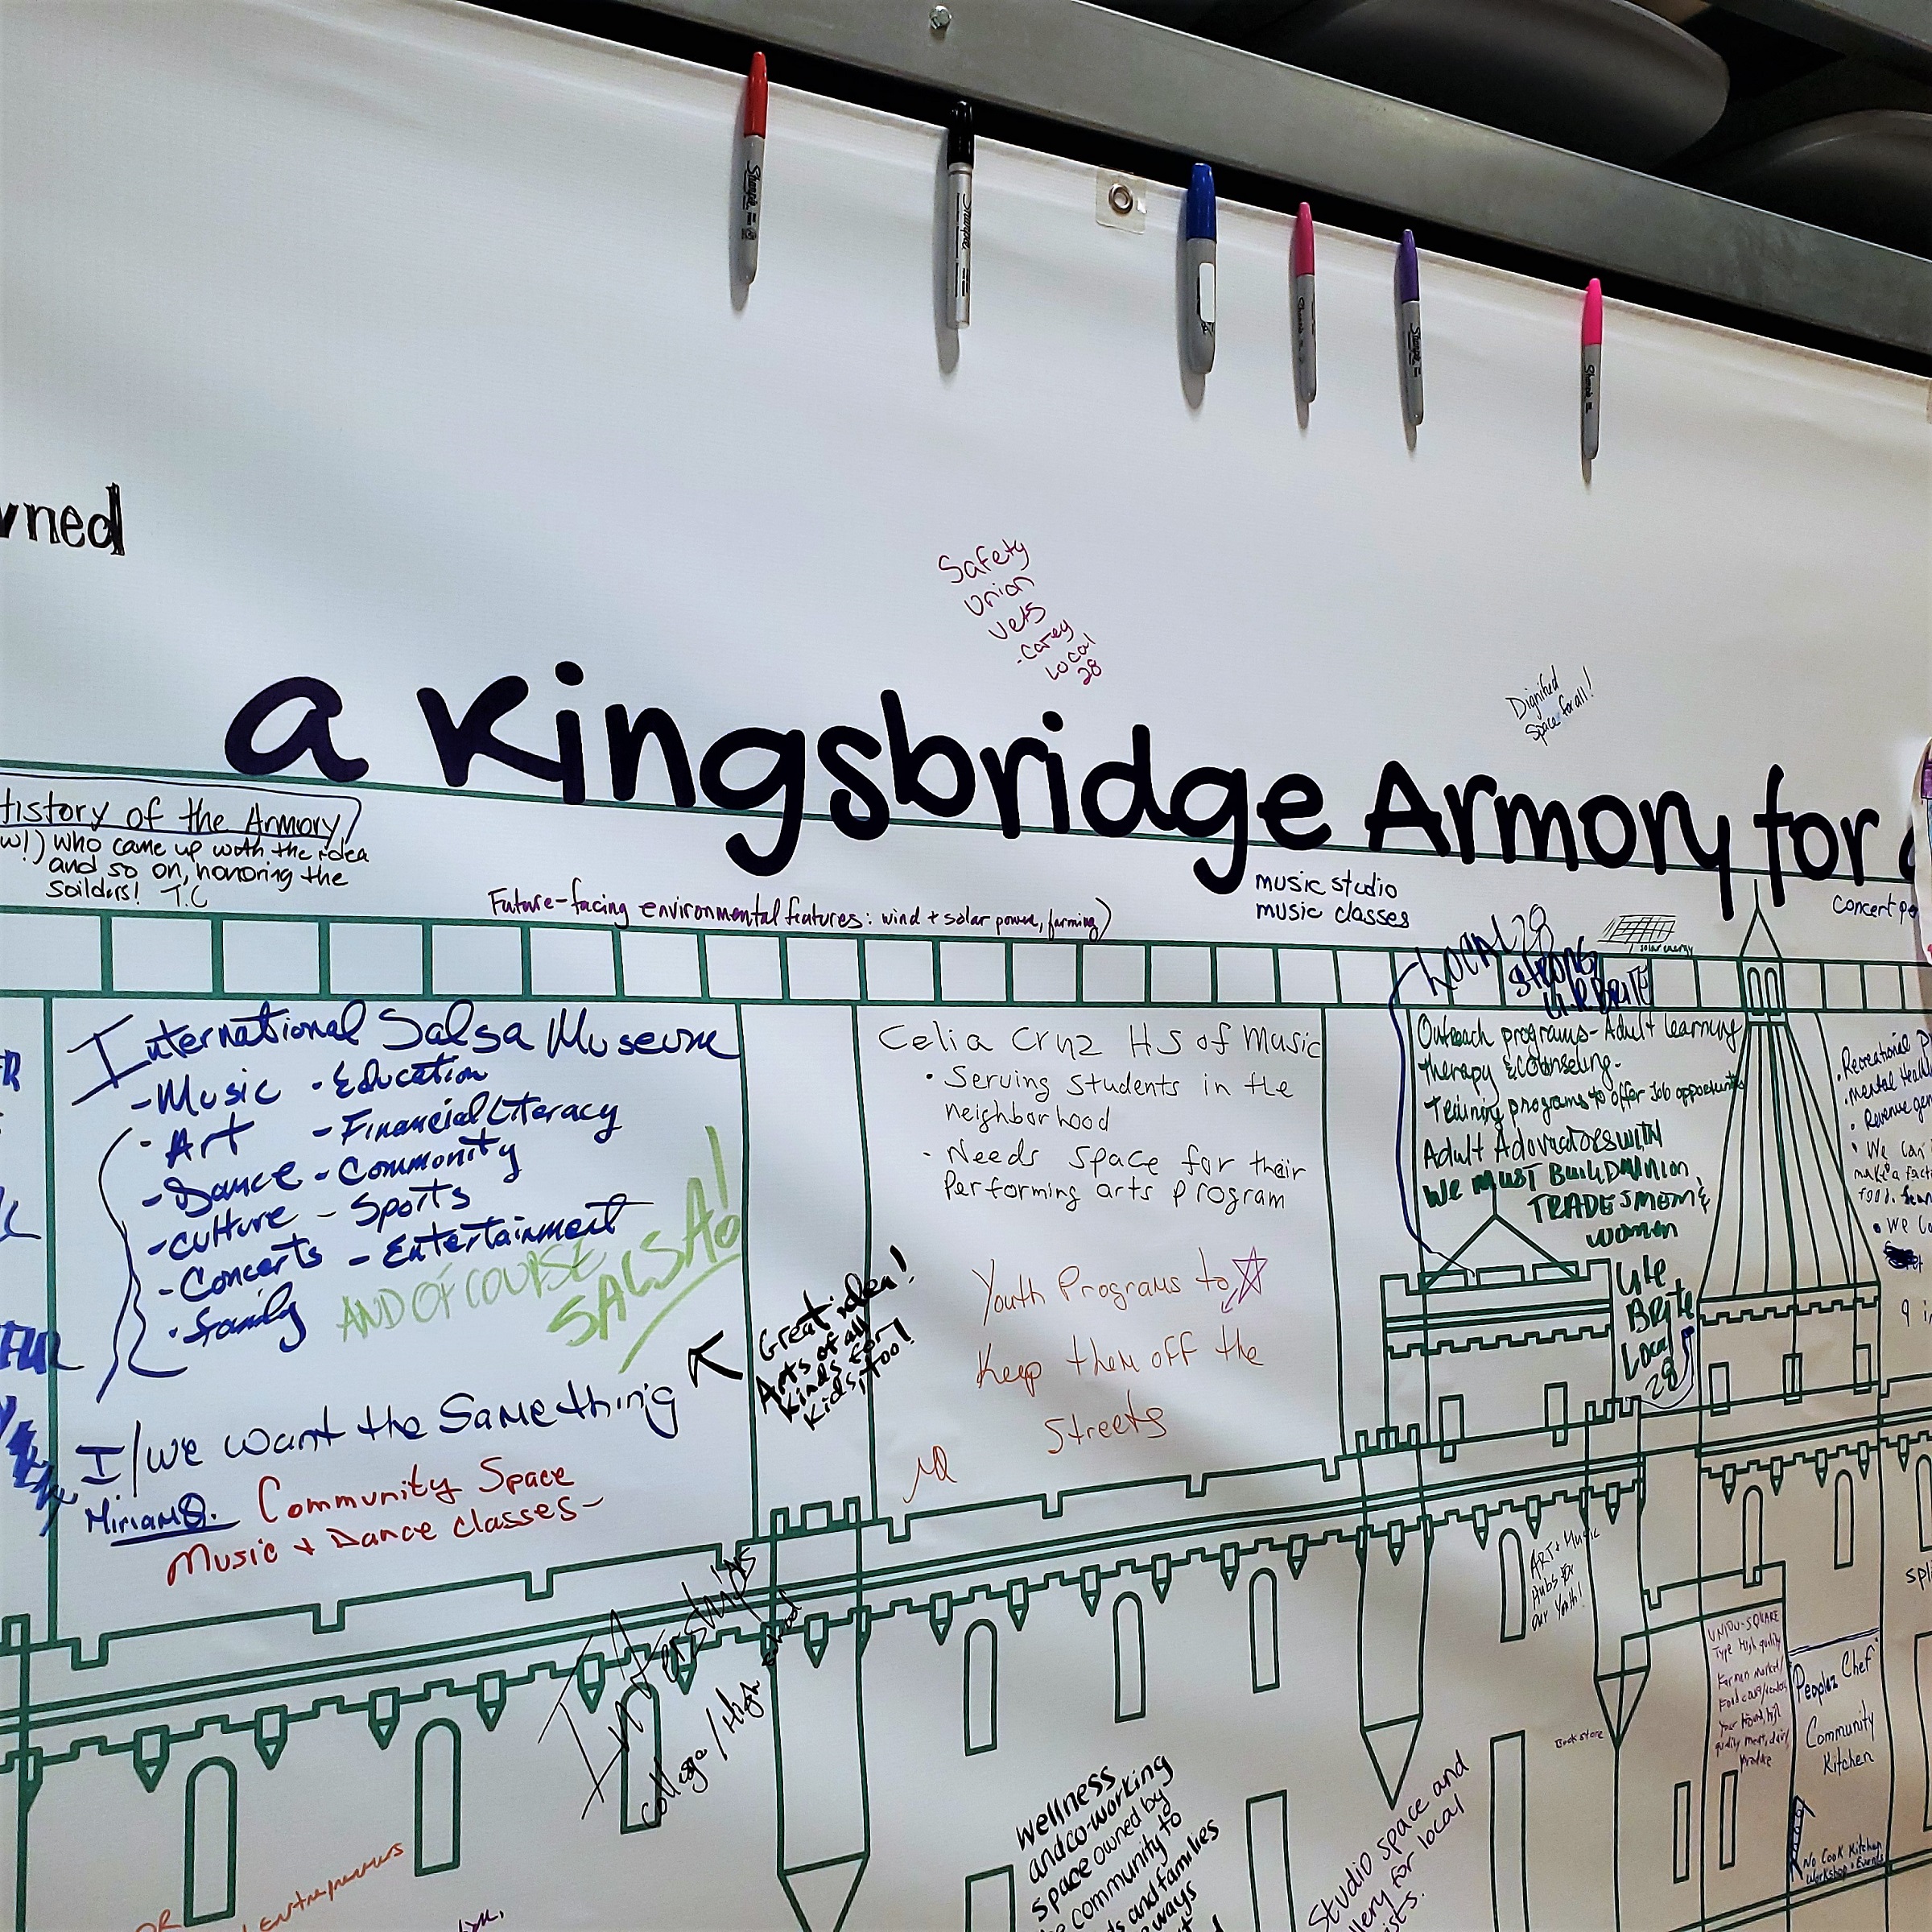 Sharpie
Sharpie
Sharpie
Sharpie
Sharpie
Safety
Union
Vets
-Carey
Local
28
Dignified
Space for all!
a Kingsbridge Armory for
History of the Armory
who came up with the idea
and so on, honoring the
soilders! T.C
Future-facing environmental features: wind + solar power, farming)
music studio
music classes
concert
LOCAL 28
STRONG
solar energy
International Salsa Museum
-Music
· Art
-Dance
-Culture
-Concerts
·Family
·Education
-Financial Literacy
-Community
-Sports
-Entertainment
AND OF COURSE
SALSA!
I/we want the same thing
MiriamQ.
Community Space
Music + Dance classes-
Great idea!
Arts of all
kinds for
kids, too!
Celia Cruz HS of Music
· Serving students in the
neighborhood
· Needs space for their
performing arts program
Youth Programs to
Keep them off the
Streets
Outreach programs- Adult learning
Therapy & Counseling-
Training programs to offer Job opportunities
Adult
We MUST BUILD UNION
TRADESMEN &
women
Lite
Brite
Local
28
· Recreational
· mental Health
· Revenue
· We can
make a
food.
Internships
College / High School
ART + Music
Hubs for
our Youth!
Book store
UNION-SQUARE
Type High quality
Farmer market/
Food court/
Year Round, high
quality meat, dairy
Produce
Peoples Chef
Community
Kitchen
No Cook Kitchen
Workshop + Events
Wellness
and co-working
space owned by
community to
and families
ways
Studio space and
for local
Entrepreneurs